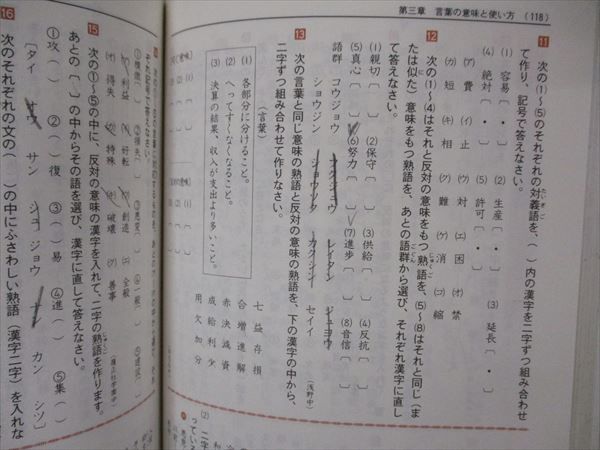 第三章 言葉の意味と使い方 (118)
11 次の(1)~(5)のそれぞれの対義語を、( )内の漢字を二字ずつ組み合わせ
て作り、記号で答えなさい。
(1) 容易〔 ・ 〕 (2) 生産〔 ・ 〕 (3) 延長〔 ・ 〕
(4) 絶対〔 ・ 〕 (5) 許可〔 ・ 〕
(ア) 費 (イ) 止 (ウ) 対 (エ) 困 (オ) 禁
(カ) 短 (キ) 相 (ク) 難 (ケ) 消 (コ) 縮
12 次の(1)~(4)はそれと反対の意味をもつ熟語を、(5)~(8)はそれと同じ(ま
たは似た)意味をもつ熟語を、あとの語群から選び、それぞれ漢字に直し
て答えなさい。
(1) 親切〔 〕 (2) 保守〔 〕 (3) 供給〔 〕 (4) 反抗〔 〕
(5) 真心〔 〕 (6) 努力〔 〕 (7) 進歩〔 〕 (8) 音信〔 〕
語群 コウジョウ ショウソク レイタン ジュヨウ
ショウジン カクシン セイイ
(浅野中)
13 次の言葉と同じ意味の熟語と反対の意味の熟語を、下の漢字の中から、
二字ずつ組み合わせて作りなさい。
(言葉)
(1) 各部分に分けること。
(2) へってすくなくなること。
(3) 決算の結果、収入が支出より多いこと。
七益存損
合増進解
赤決減資
成給利少
用欠加分
それぞれ記号で答えなさい。
(ア) 利益 (イ) 好転 (ウ) 創造 (エ) 全般
(オ) 得失 (カ) 特殊 (キ) 破壊 (ク) 善事
15 次の①~⑤の中に、反対の意味の漢字を入れて、二字の熟語を作ります。
あとの〔 〕の中からその語を選び、漢字に直して答えなさい。
①攻( ) ②( )復 ③( )易 ④進( ) ⑤集( )
〔タイ オウ サン シュ ジョウ ナン カン シツ〕
16 次のそれぞれの文の( )の中にふさわしい熟語(漢字二字)を入れな